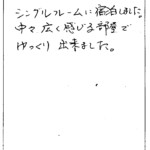 シングルルームに宿泊しました。
中々広く感じる部屋で
ゆっくり出来ました。